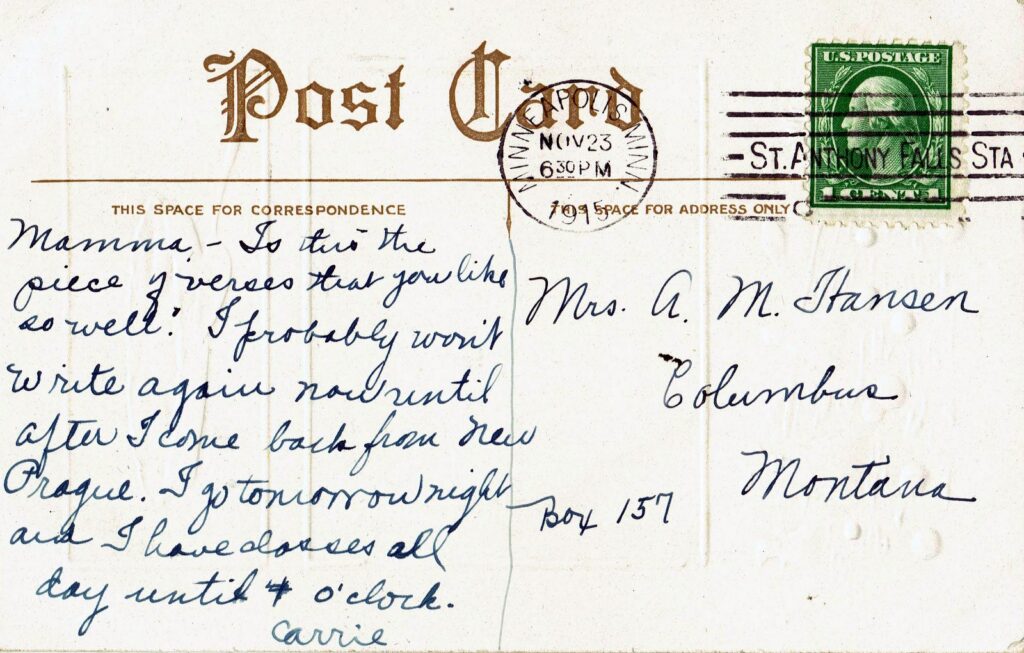 Post Card
MINNEAPOLIS MINN.
NOV 23
6 30 PM
1915
U.S. POSTAGE
ST. ANTHONY FALLS STA
1 CENT 1
THIS SPACE FOR CORRESPONDENCE
THIS SPACE FOR ADDRESS ONLY
Mamma, - Is this the
piece of verses that you like
so well? I probably won't
write again now until
after I come back from New
Prague. I go tomorrow night
and I have classes all
day until 4 o'clock.
Carrie
Mrs. A. M. Hansen
Columbus
Montana
Box 157